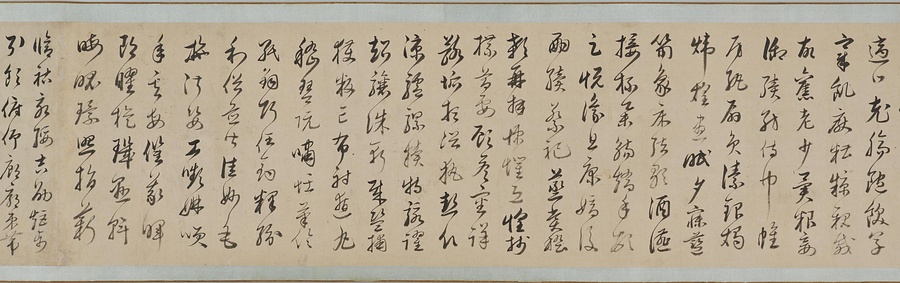 適口充腸飽飫烹
宰飢厭糟糠親戚
故舊老少異糧妾
御績紡侍巾帷
房紈扇圓潔銀燭
煒煌晝眠夕寐藍
筍象床弦歌酒讌
接杯舉觴矯手頓
足悅豫且康嫡後
嗣續祭祀蒸嘗稽
顙再拜悚懼恐惶牋
牒簡要顧答審詳
骸垢想浴執熱願
涼驢騾犢特駭躍
超驤誅斬賊盜捕
獲叛亡布射遼丸
嵇琴阮嘯恬筆倫
紙鈞巧任釣釋紛
利俗並皆佳妙毛
施淑姿工嚬妍笑
年矢每催羲暉
朗曜旋璣懸斡
晦魄環照指薪
脩祜永綏吉劭矩步
引領俯仰廊廟束帶